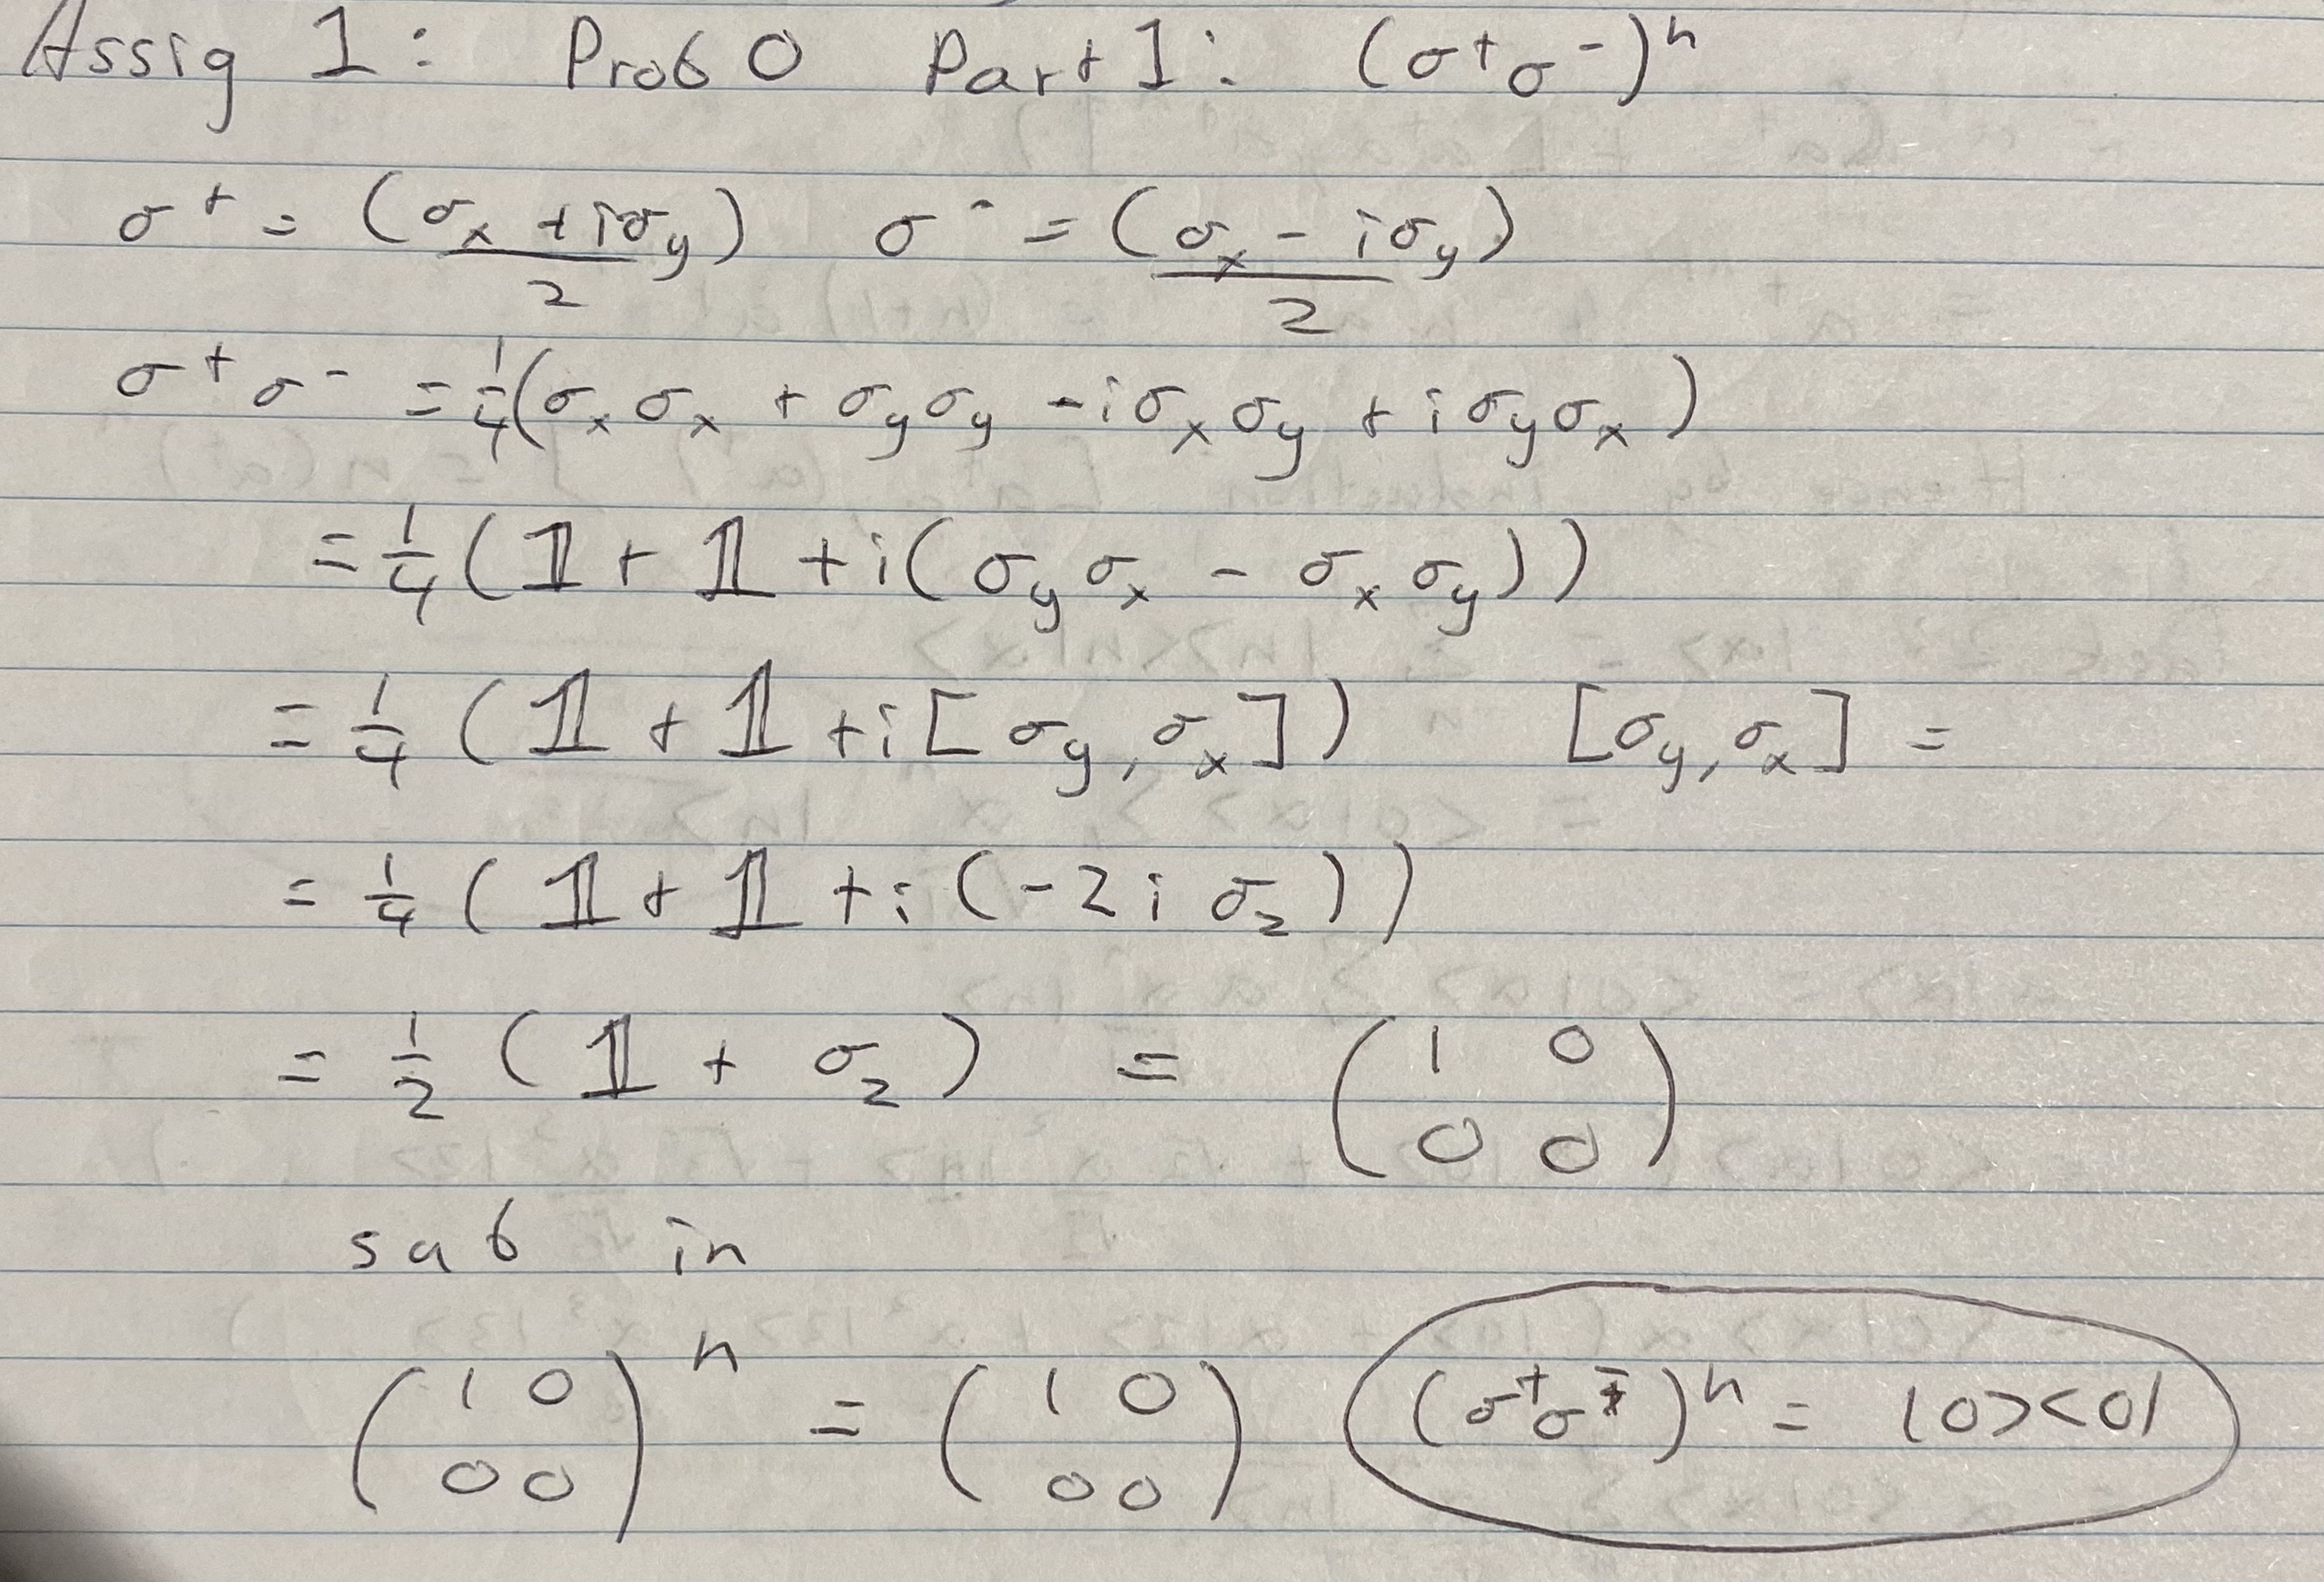 Assig 1: Prob 0 Part 1: (σ⁺σ⁻)ⁿ
σ⁺ = (σₓ + iσ_y)/2 σ⁻ = (σₓ - iσ_y)/2
σ⁺σ⁻ = ¼(σₓσₓ + σ_yσ_y - iσₓσ_y + iσ_yσₓ)
= ¼(𝟙 + 𝟙 + i(σ_yσₓ - σₓσ_y))
= ¼(𝟙 + 𝟙 + i[σ_y, σₓ]) [σ_y, σₓ] =
= ¼(𝟙 + 𝟙 + i(-2iσ_z))
= ½(𝟙 + σ_z) = (1 0
0 0)
sub in
(1 0
0 0)ⁿ = (1 0
0 0) (σ⁺σ⁻)ⁿ = |0><0|